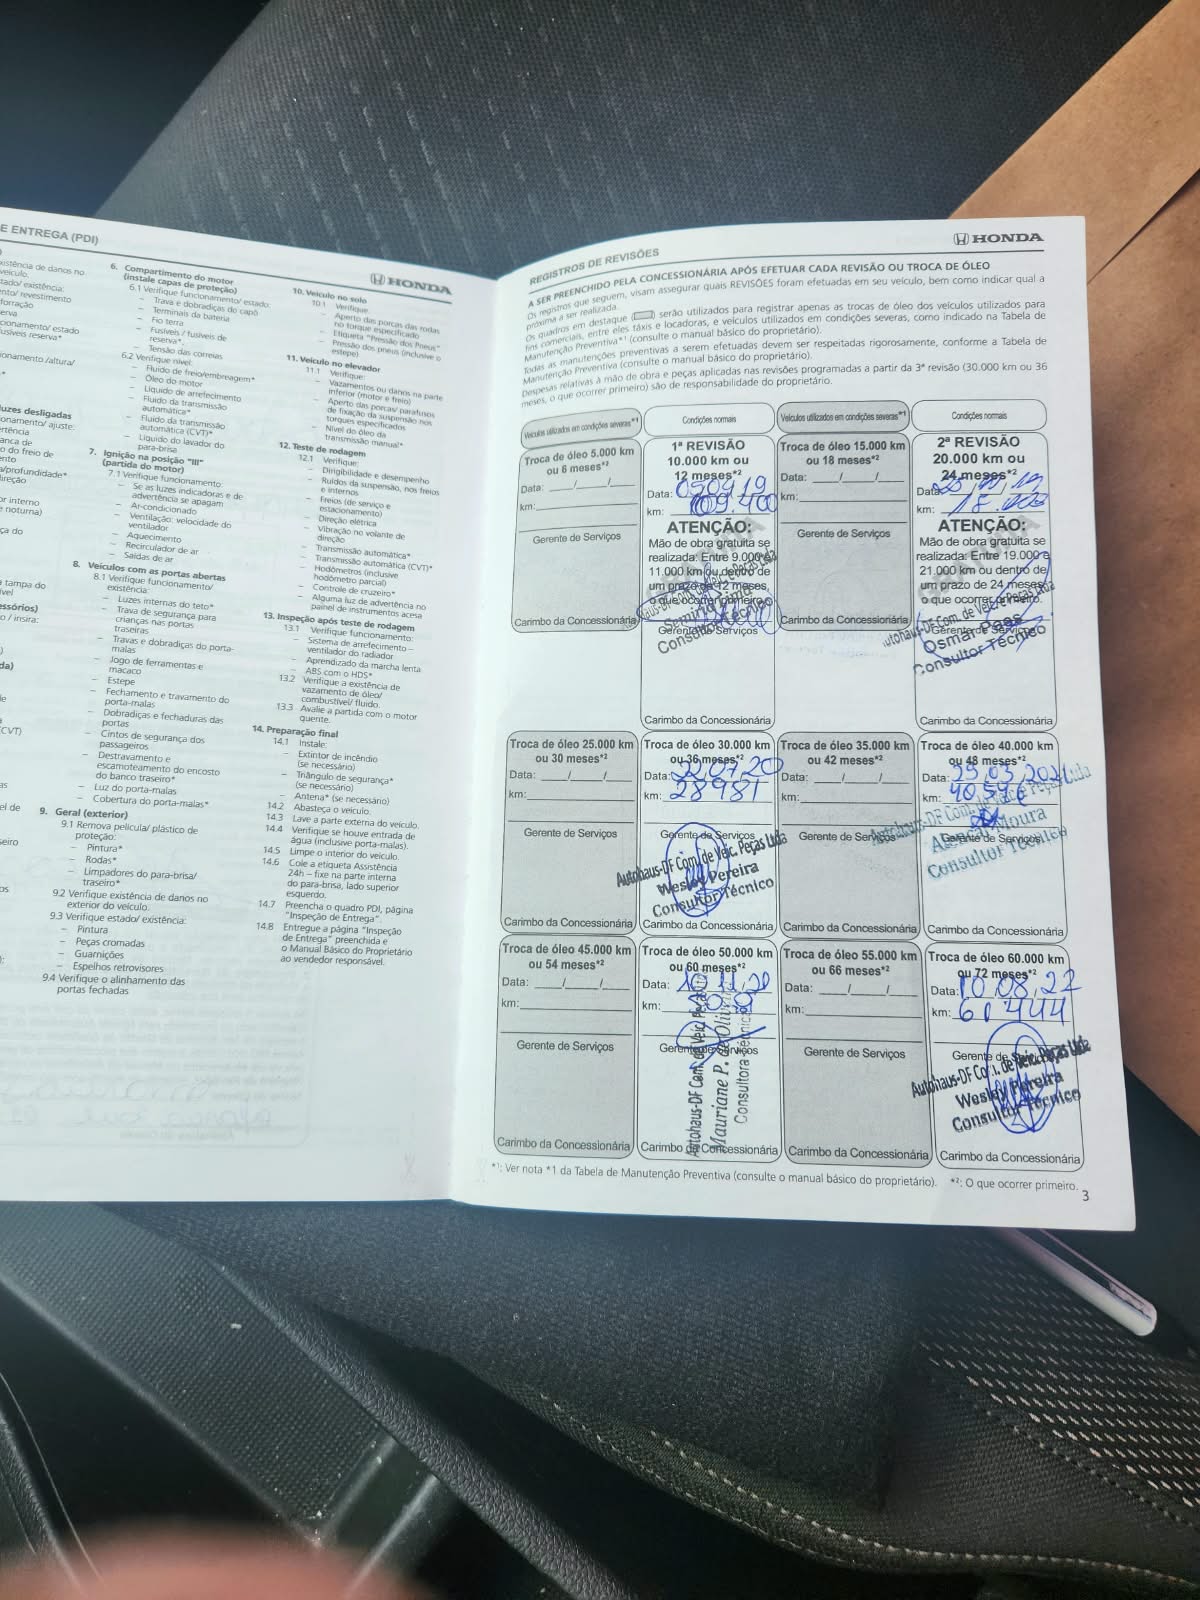 E ENTREGA (PDI)
HONDA
existência de danos no
veículo.
luzes desligadas
6. Compartimento do motor
(instale capas de proteção)
6.1 Verifique funcionamento/ estado:
– Trava e dobradiças do capô
– Terminais da bateria
– Fio terra
– Fusíveis / fusíveis de
reserva*.
– Tensão das correias
6.2 Verifique nível:
– Fluido de freio/embreagem*
– Óleo do motor
– Líquido de arrefecimento
– Fluido da transmissão
automática*
– Fluido da transmissão
automática (CVT)*
– Líquido do lavador do
para-brisa
7. Ignição na posição "III"
(partida do motor)
7.1 Verifique funcionamento:
– Se as luzes indicadoras e de
advertência se apagam
– Ar-condicionado
– Ventilação: velocidade do
ventilador
– Aquecimento
– Recirculador de ar
– Saídas de ar
8. Veículos com as portas abertas
8.1 Verifique funcionamento/
existência:
– Luzes internas do teto*
– Trava de segurança para
crianças nas portas
traseiras
– Travas e dobradiças do porta-
malas
– Jogo de ferramentas e
macaco
– Estepe
– Fechamento e travamento do
porta-malas
– Dobradiças e fechaduras das
portas
– Cintos de segurança dos
passageiros
– Destravamento e
escamoteamento do encosto
do banco traseiro*
– Luz do porta-malas
– Cobertura do porta-malas*
9. Geral (exterior)
9.1 Remova película/ plástico de
proteção:
– Pintura*
– Rodas*
– Limpadores do para-brisa/
traseiro*
9.2 Verifique existência de danos no
exterior do veículo.
9.3 Verifique estado/ existência:
– Pintura
– Peças cromadas
– Guarnições
– Espelhos retrovisores
9.4 Verifique o alinhamento das
portas fechadas
10. Veículo no solo
10.1 Verifique:
– Aperto das porcas das rodas
no torque especificado
– Etiqueta "Pressão dos Pneus"
– Pressão dos pneus (inclusive o
estepe)
11. Veículo no elevador
11.1 Verifique:
– Vazamentos ou danos na parte
inferior (motor e freio)
– Aperto das porcas/ parafusos
de fixação da suspensão nos
torques especificados
– Nível do óleo da
transmissão manual*
12. Teste de rodagem
12.1 Verifique:
– Dirigibilidade e desempenho
– Ruídos da suspensão, nos freios
e internos
– Freios (de serviço e
estacionamento)
– Direção elétrica
– Vibração no volante de
direção
– Transmissão automática*
– Transmissão automática (CVT)*
– Hodômetros (inclusive
hodômetro parcial)
– Controle de cruzeiro*
– Alguma luz de advertência no
painel de instrumentos acesa
13. Inspeção após teste de rodagem
13.1 Verifique funcionamento:
– Sistema de arrefecimento –
ventilador do radiador
– Aprendizado da marcha lenta
– ABS com o HDS*
13.2 Verifique a existência de
vazamento de óleo/
combustível/ fluido.
13.3 Avalie a partida com o motor
quente.
14. Preparação final
14.1 Instale:
– Extintor de incêndio
(se necessário)
– Triângulo de segurança*
(se necessário)
– Antena* (se necessário)
14.2 Abasteça o veículo.
14.3 Lave a parte externa do veículo.
14.4 Verifique se houve entrada de
água (inclusive porta-malas).
14.5 Limpe o interior do veículo.
14.6 Cole a etiqueta Assistência
24h – fixe na parte interna
do para-brisa, lado superior
esquerdo.
14.7 Preencha o quadro PDI, página
"Inspeção de Entrega".
14.8 Entregue a página "Inspeção
de Entrega" preenchida e
o Manual Básico do Proprietário
ao vendedor responsável.
REGISTROS DE REVISÕES
HONDA
A SER PREENCHIDO PELA CONCESSIONÁRIA APÓS EFETUAR CADA REVISÃO OU TROCA DE ÓLEO
Os registros que seguem, visam assegurar quais REVISÕES foram efetuadas em seu veículo, bem como indicar qual a
próxima a ser realizada.
Os quadros em destaque ( ) serão utilizados para registrar apenas as trocas de óleo dos veículos utilizados para
fins comerciais, entre eles táxis e locadoras, e veículos utilizados em condições severas, como indicado na Tabela de
Manutenção Preventiva*¹ (consulte o manual básico do proprietário).
Todas as manutenções preventivas a serem efetuadas devem ser respeitadas rigorosamente, conforme a Tabela de
Manutenção Preventiva (consulte o manual básico do proprietário).
Despesas relativas à mão de obra e peças aplicadas nas revisões programadas a partir da 3ª revisão (30.000 km ou 36
meses, o que ocorrer primeiro) são de responsabilidade do proprietário.
Veículos utilizados em condições severas*¹
Condições normais
Veículos utilizados em condições severas*¹
Condições normais
Troca de óleo 5.000 km
ou 6 meses*²
Data: ___/___/___
km:
Gerente de Serviços
Carimbo da Concessionária
1ª REVISÃO
10.000 km ou
12 meses*²
Data: 05 04 19
km:
ATENÇÃO:
Mão de obra gratuita se
realizada: Entre 9.000 a
11.000 km ou dentro de
um prazo de 12 meses,
o que ocorrer primeiro.
Gerente de Serviços
Consultor Técnico
Carimbo da Concessionária
Troca de óleo 15.000 km
ou 18 meses*²
Data: ___/___/___
km:
Gerente de Serviços
Carimbo da Concessionária
2ª REVISÃO
20.000 km ou
24 meses*²
Data:
km:
ATENÇÃO:
Mão de obra gratuita se
realizada: Entre 19.000 a
21.000 km ou dentro de
um prazo de 24 meses,
o que ocorrer primeiro.
Autohaus-DF Com. de Veic. e Peças Ltda
Gerente de Serviços
Osmar
Consultor Técnico
Carimbo da Concessionária
Troca de óleo 25.000 km
ou 30 meses*²
Data: ___/___/___
km:
Gerente de Serviços
Carimbo da Concessionária
Troca de óleo 30.000 km
ou 36 meses*²
Data: 22 07 20
km: 28981
Gerente de Serviços
Autohaus-DF Com. de Veic. Peças Ltda
Wesley Pereira
Consultor Técnico
Carimbo da Concessionária
Troca de óleo 35.000 km
ou 42 meses*²
Data: ___/___/___
km:
Gerente de Serviços
Carimbo da Concessionária
Troca de óleo 40.000 km
ou 48 meses*²
Data: 25 03 2021
km:
Gerente de Serviços
Moura
Consultor Técnico
Carimbo da Concessionária
Troca de óleo 45.000 km
ou 54 meses*²
Data: ___/___/___
km:
Gerente de Serviços
Carimbo da Concessionária
Troca de óleo 50.000 km
ou 60 meses*²
Data: 10 11
km:
Gerente de Serviços
Autohaus-DF Com. de Veic. Peças
Mauriane P. de Oliveira
Consultora Técnica
Carimbo da Concessionária
Troca de óleo 55.000 km
ou 66 meses*²
Data: ___/___/___
km:
Gerente de Serviços
Carimbo da Concessionária
Troca de óleo 60.000 km
ou 72 meses*²
Data: 10,08,22
km: 60444
Gerente de Serviços
Autohaus-DF Com. de Veic. Peças Ltda
Wesley Pereira
Consultor Técnico
Carimbo da Concessionária
*¹: Ver nota *1 da Tabela de Manutenção Preventiva (consulte o manual básico do proprietário). *²: O que ocorrer primeiro.
3